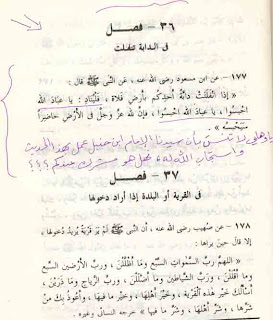 ٣٦ - فصـــل
فى الدابة تنفلت
١٧٧ - عن ابن مسعود رضى الله عنه، عن النَّبي ﷺ قال :
« إذا انْفَلَتَتْ دابَّةُ أحَدِكُم بأرْضِ فَلاةٍ، فَلْيُنَادِ : يا عِبادَ الله
احْبِسُوا، يا عبادَ الله احْبِسُوا، فإنَّ لله عزَّ وجَلَّ فى الأرْضِ حَاضِراً
سَيَحْبِسُهُ »
يا وهابي لا تنسى بأن سيدنا الإمام ابن حنبل عمل بهذا الحديث
واستجاب الله له فهل هو مشرك عندكم ؟؟؟
٣٧ - فصـــل
فى القرية أو البلدة إذا أراد دخولها
١٧٨ - عن صُهيب رضى الله عنه ، أن النَّبى ﷺ لَمْ يَرَ قَرْيَةً يُرِيدُ دُخُولَها ،
إلا قال حينَ يراها :
« اللهم ربَّ السَّمَواتِ السَّبعِ وما أظْلَلْنَ ، وربَّ الأرْضينَ السَّبعِ
وما أقْلَلْنَ ، ورَبَّ الشَّياطينِ وما أضْلَلْنَ ، وربَّ الرِّياحِ وما ذَرَيْنَ ،
أسْألُكَ خَيْرَ هذه القَرْيَةِ ، وخَيْرَ أهْلِها ، وخَيْرَ ما فيها ، وأعُوذُ بكَ مِنْ
شَرِّها ، وشَرِّ أهْلِها ، وشَرِّ ما فيها » خرجه النسائى وغيره .